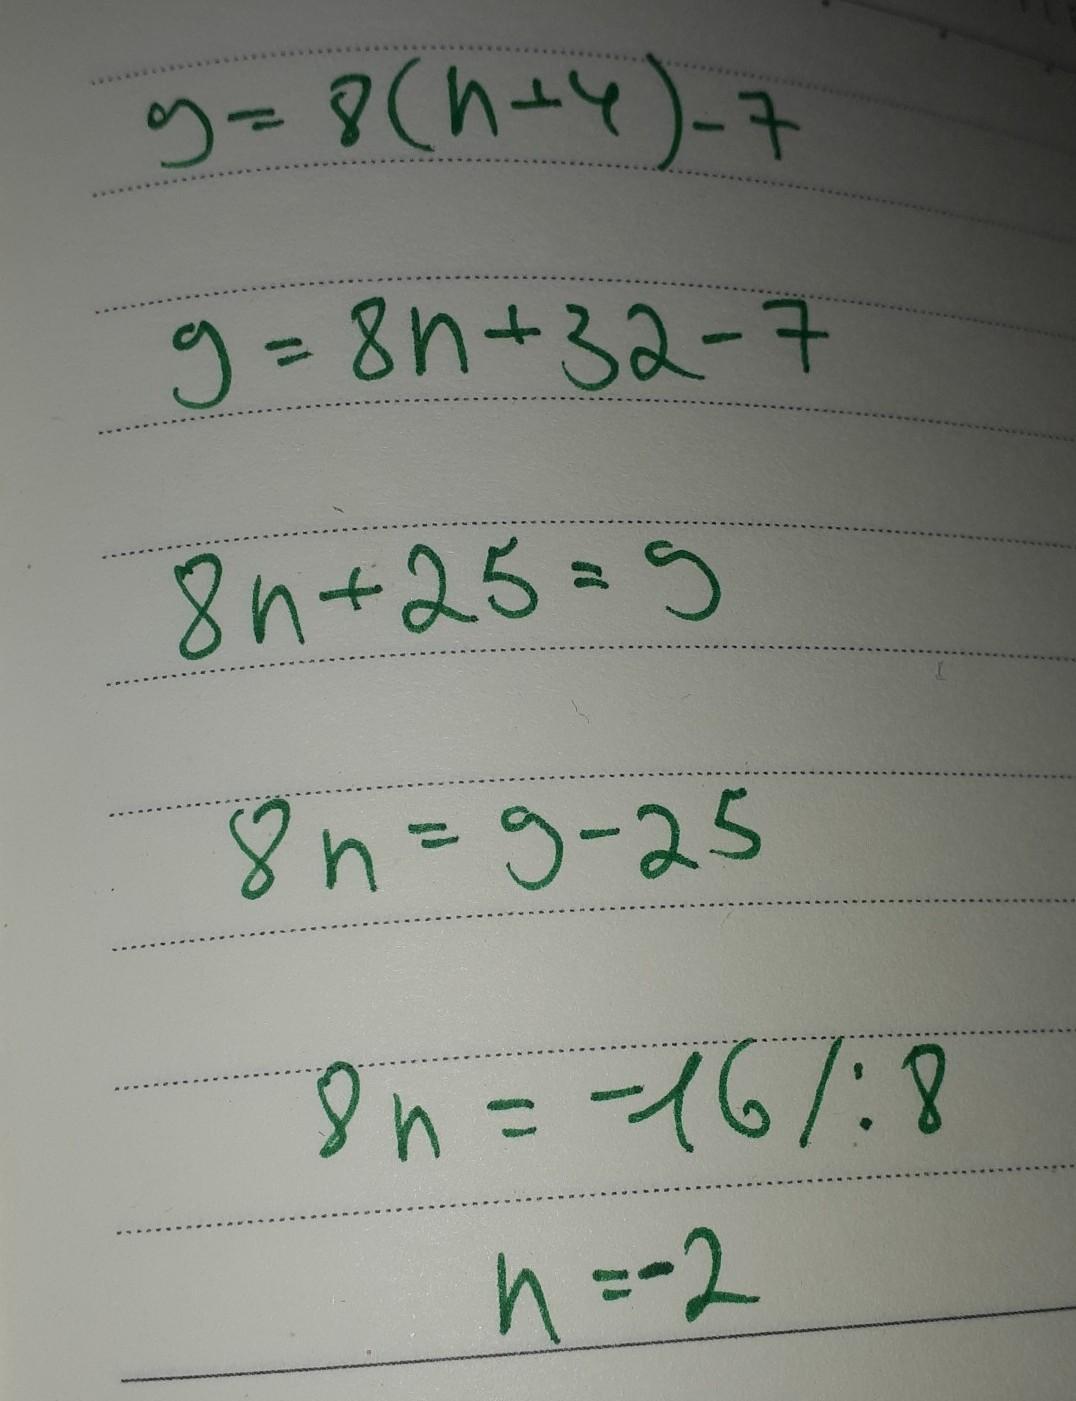 9 = 8(n+4)-7
9 = 8n+32-7
8n+25 = 9
8n = 9-25
8n = -16 /:8
n = -2